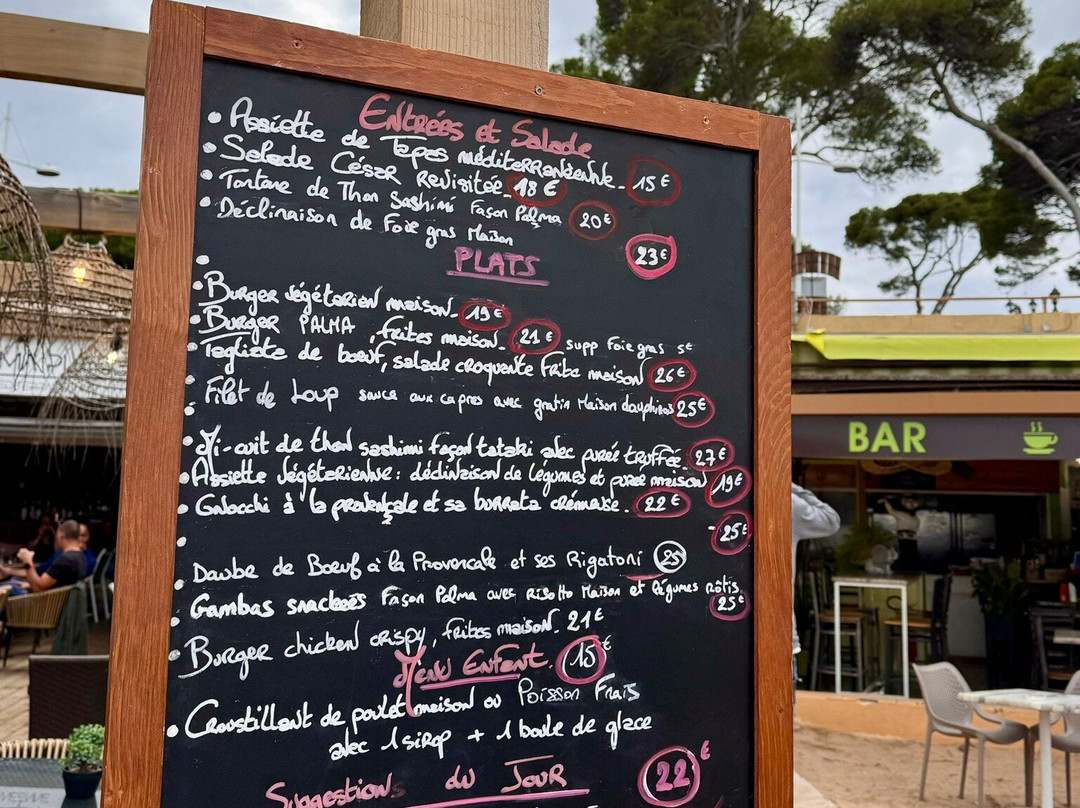 Entrées et Salade
• Assiette de Tapas méditerranéenne. 15€
• Salade César Revisitée. 18€
• Tartare de Thon Sashimi Façon Palma 20€
• Déclinaison de Foie gras Maison 23€
PLATS
• Burger végétarien maison. 19€
• Burger PALMA, frites maison. 21€ supp Foie gras 5€
• Tagliata de bœuf, salade croquante frite maison 26€
• Filet de Loup sauce aux capres avec gratin Maison dauphinois 25€
• Mi-cuit de thon sashimi façon tataki avec purée truffée. 27€
• Assiette végétarienne: déclinaison de légumes et purée maison 19€
• Gnocchi à la provençale et sa burrata crémeuse. 22€
- 25€
• Daube de Bœuf à la Provencale et ses Rigatoni 25
• Gambas snackées Façon Palma avec Risotto Maison et légumes rôtis. 25€
• Burger chicken crispy, frites maison. 21€
Menu Enfant 15€
• Croustillant de poulet maison ou Poisson Frais
avec 1 sirop + 1 boule de glace
Suggestions du Jour 22€
BAR